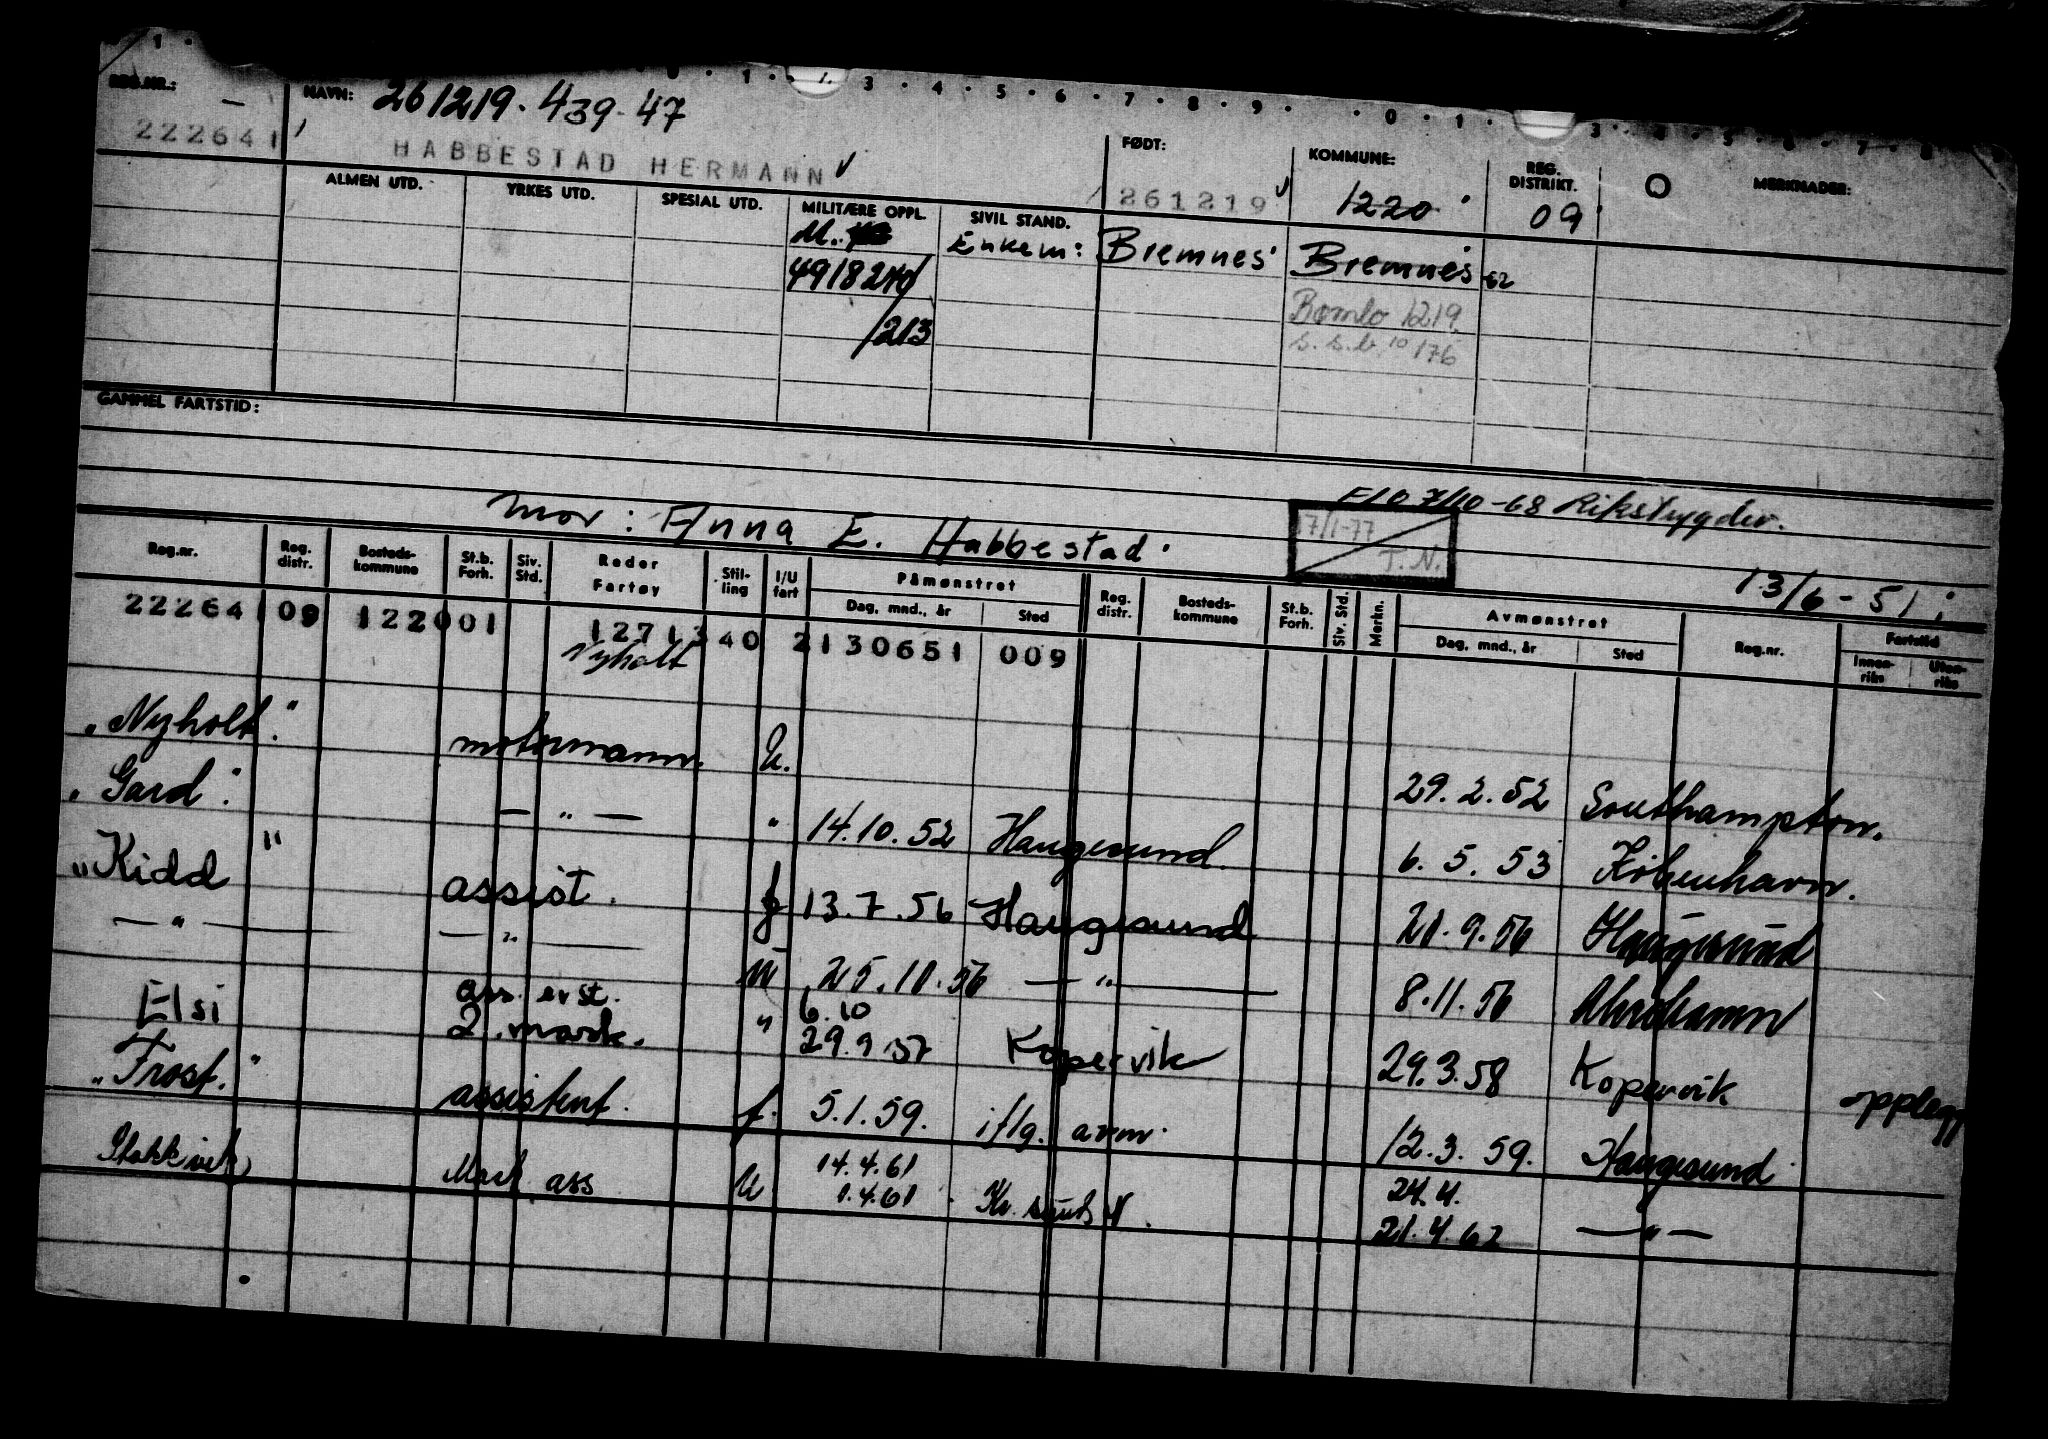 REG.NR.: NAVN: 261219.439-47
222641 HABBESTAD HERMANN FØDT: 261219 KOMMUNE: 1220 REG. DISTRIKT. 09 O MERKNADER:
ALMEN UTD. YRKES UTD. SPESIAL UTD. MILITÆRE OPPL. SIVIL STAND.
M. Enkem: Bremnes Bremnes 62
Bømlo 1219
/213 s.s.b. 10/76
GAMMEL FARTSTID:
7/10-68 Rikstrygdev.
mor: Anna E. Habbestad. 17/1-77 T.N.
13/6-51
Reg.nr. Reg. distr. Bosteds-kommune St.b. Forh. Siv. Std. Reder Fartøy Stil-ling I/U fart Påmønstret Dag, mnd., år Sted Reg. distr. Bosteds-kommune St.b. Forh. Siv. Std. Merkn. Avmønstret Dag, mnd., år Sted Reg.nr. Fartstid Innen-riks Uten-riks
222641 09 122001 1271340 2130651 009
Nyholt
"Nyholt." motormann. U. 29.2.52 Southampton.
"Gard". — " — " 14.10.52 Haugesund. 6.5.53 København.
"Kidd" assist. f 13.7.56 Haugesund 21.9.56 Haugesund
— " — — " — 25.10.56 — " — 8.11.56
Elsi ass. 6.10
2. mask. " 29.9.57 Kopervik 29.3.58 Kopervik opplegg
"Frost." assistent. f. 5.1.59. iflg. avm. 12.3.59. Haugesund.
Stokkvik Mask ass U 14.4.61 24.4.
1.4.61 Kr. sund N. 21.4.62 — " —